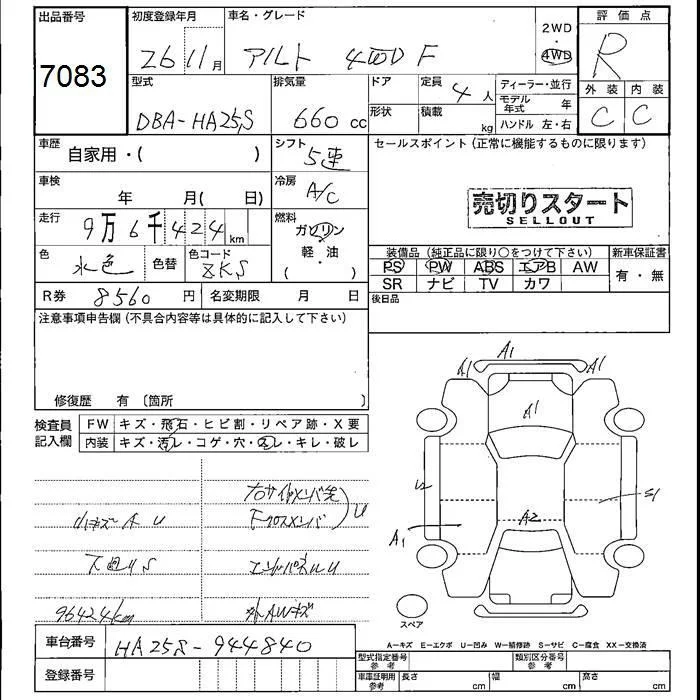 出品番号
7083
初度登録年月
26 11月
車名・グレード
アルト 4WD F
2WD
4WD
評価点
R
外装 内装
C C
型式
DBA-HA25S
排気量
660 cc
ドア
形状
定員
4人
積載
kg
ディーラー・並行
モデル年式 年
ハンドル 左・右
車歴
自家用・( )
シフト
5速
セールスポイント(正常に機能するものに限ります)
車検
年 月( 日)
冷房
A/C
売切りスタート
SELLOUT
走行
9万6千424km
燃料
ガソリン
軽・油
( )
色
水色
色替
色コード
ZKS
装備品(純正品に限り○をつけて下さい)
新車保証書
PS PW ABS エアB AW
有・無
SR ナビ TV カワ
R券 8560円
名変期限 月 日
後日品
注意事項申告欄(不具合内容等は具体的に記入して下さい)
修復歴 有〔箇所 〕
検査員記入欄
FW キズ・飛石・ヒビ割・リペア跡・X要
内装 キズ・汚レ・コゲ・穴・スレ・キレ・破レ
A1
A1 A1
A1
S1
A1
A2
小キズ A U
Fクロスメンバ
U
下廻りS
エンドパネルU
96424km
外AWキズ
スペア
A=キズ E=エクボ U=凹み W=補修跡 S=サビ C=腐食 XX=交換済
車台番号
HA25S-944840
登録番号
型式指定番号
参考
類別区分番号
参考
車庫証明用
参考
長さ cm
幅 cm
高さ cm